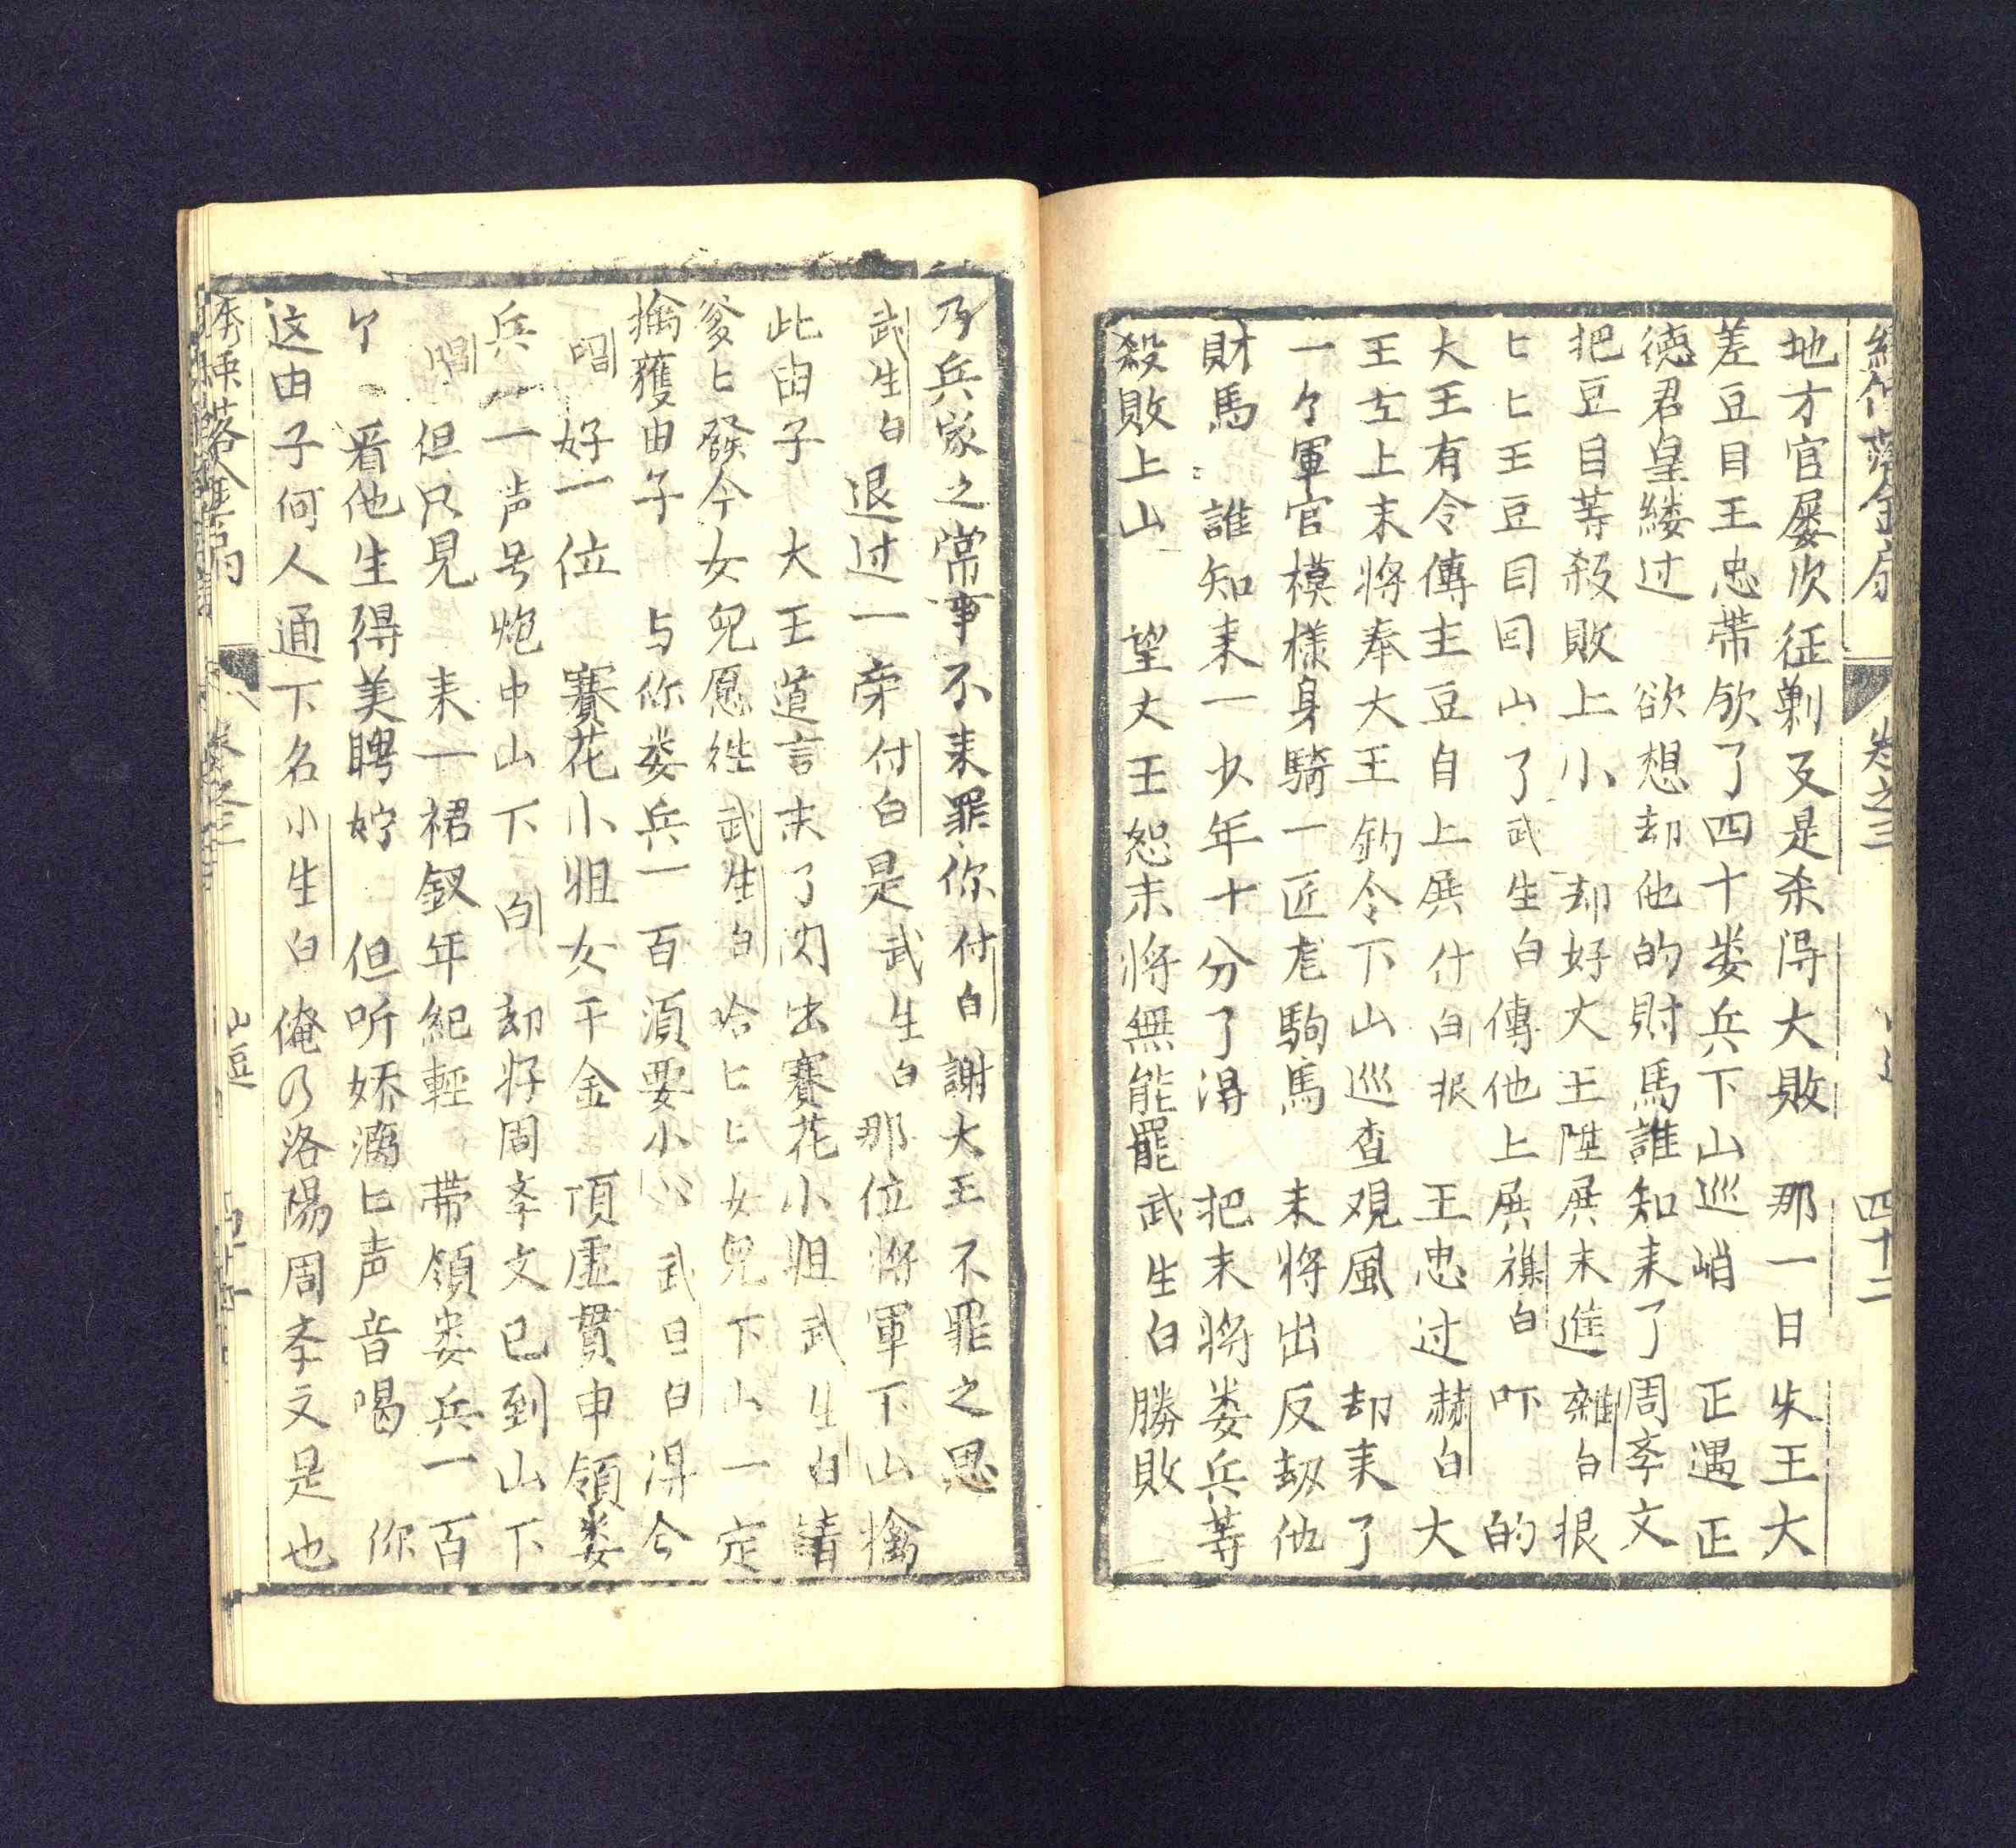 卷之三 四十二
地方官屡次征剿反是杀得大敗 那一日失王大
差豆目王忠带領了四十娄兵下山巡哨 正遇正
德君皇緀过 欲想却他的財馬誰知耒了周孝文
把豆目䓁殺敗上小 却好大王陞展末進 雑白 报
匕匕王豆目囙山了 武生白 傳他上展 襍白 吓 的
大王有令傳主豆自上展 什白 报 王忠过 赫白 大
王在上末將奉大王鈞令下山巡查观風 却耒了
一个軍官模樣身騎一匹龙駒馬 末將出反刼他
財馬 誰知耒一少年十分了淂 把末將娄兵䓁
殺敗上山 望大王恕末將無能罷 武生白 勝敗
乃兵家之常事不耒罪你 付白 謝大王不罪之恩
武生白 退过一旁 付白 是 武生白 那位將軍下山擒
此由子 大王道言末了闪出賽花小姐 武生白 請
爹匕發令女兒愿徃 武生白 哈匕匕女兒下山一定
擒獲由子 与你娄兵一百湏要小心 武旦白 淂令
唱 好一位 賽花小姐女千金 頂盧貫甲領娄
兵一一声号炮中山下 白 却好周孝文已到山下
唱 但只見 耒一裙釵年紀輕 带領娄兵一百
个 看他生得美聘婷 但听娇滴匕声音喝 你
这由子何人通下名 小生白 俺乃洛陽周孝文是也